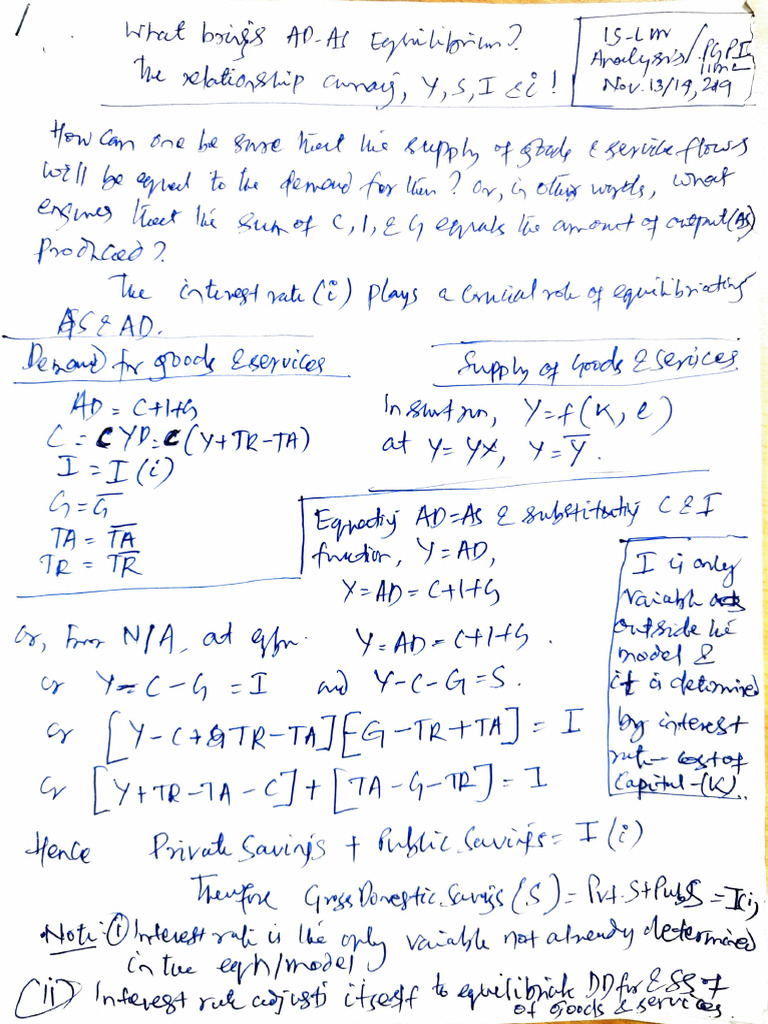 1
What brings AD-AS Equilibrium?
The relationship among, Y, S, I & i!
IS-LM
Analysis/PGPI
Nov. 13/14, 219
How can one be sure that the supply of goods & service flows
will be equal to the demand for them? Or, in other words, what
ensures that the sum of C, I, & G equals the amount of output (AS)
produced?
The interest rate (i) plays a crucial role of equilibriating
AS & AD.
Demand for goods & services
AD = C+I+G
C = C YD = C (Y+TR-TA)
I = I (i)
G = G̅
TA = T̅A̅
TR = T̅R̅
Supply of Goods & Services
In short run, Y=f(K, e)
at Y = Y*, Y = Y̅.
Equating AD=AS & substituting C & I
function, Y=AD,
Y=AD = C+I+G
I is only
variable
outside the
model &
it is determined
by interest
rate - cost of
Capital-(K).
Or, From N/A, at eqbm. Y=AD=C+I+G.
or Y-C-G = I and Y-C-G=S.
or [Y-C+TR-TA][G-TR+TA] = I
or [Y+TR-TA-C]+[TA-G-TR] = I
Hence Private Savings + Public Savings = I (i)
Therefore Gross Domestic Savings (S) = Pvt. S + Pub S = I(i)
Note: (i) Interest rate is the only variable not already determined
in the eqn/model
(ii) Interest rate adjusts itself to equilibriate DD for & SS of
of Goods & services.